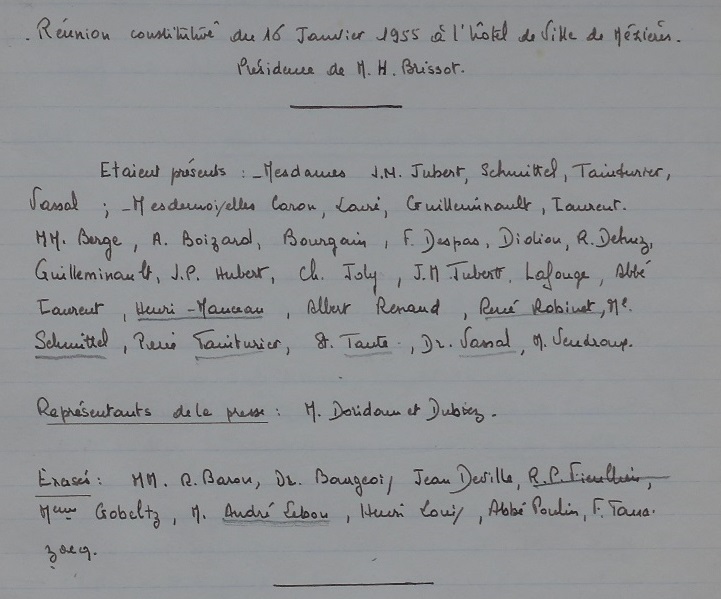 . Réunion constitutive du 16 Janvier 1955 à l'hôtel de Ville de Mézières.
Présidence de M. H. Brissot.
Etaient présents : - Mesdames J.M. Jubert, Schmittel, Tainturier,
Vassal ; - Mesdemoiselles Caron, Louré, Guilleminault, Laurent.
MM. Berge, A. Boizard, Bourgain, F. Despas, Didion, R. Dehuz,
Guilleminault, J.P. Hubert, Ch. Joly, J.M Jubert, Lafouge, Abbé
Laurent, Henri-Manceau, Albert Renaud, René Robinet, Me.
Schmittel, Pierre Tainturier, St. Taute, Dr. Vassal, M. Vendroux.
Représentants de la presse : M. Doridam et Dubiez.
Exasés : MM. R. Baron, Dr. Bourgeois, Jean Deville, R.P.
Mme Gobeltz, M. André Lebon, Henri Louis, Abbé Poulin, F. Tara.